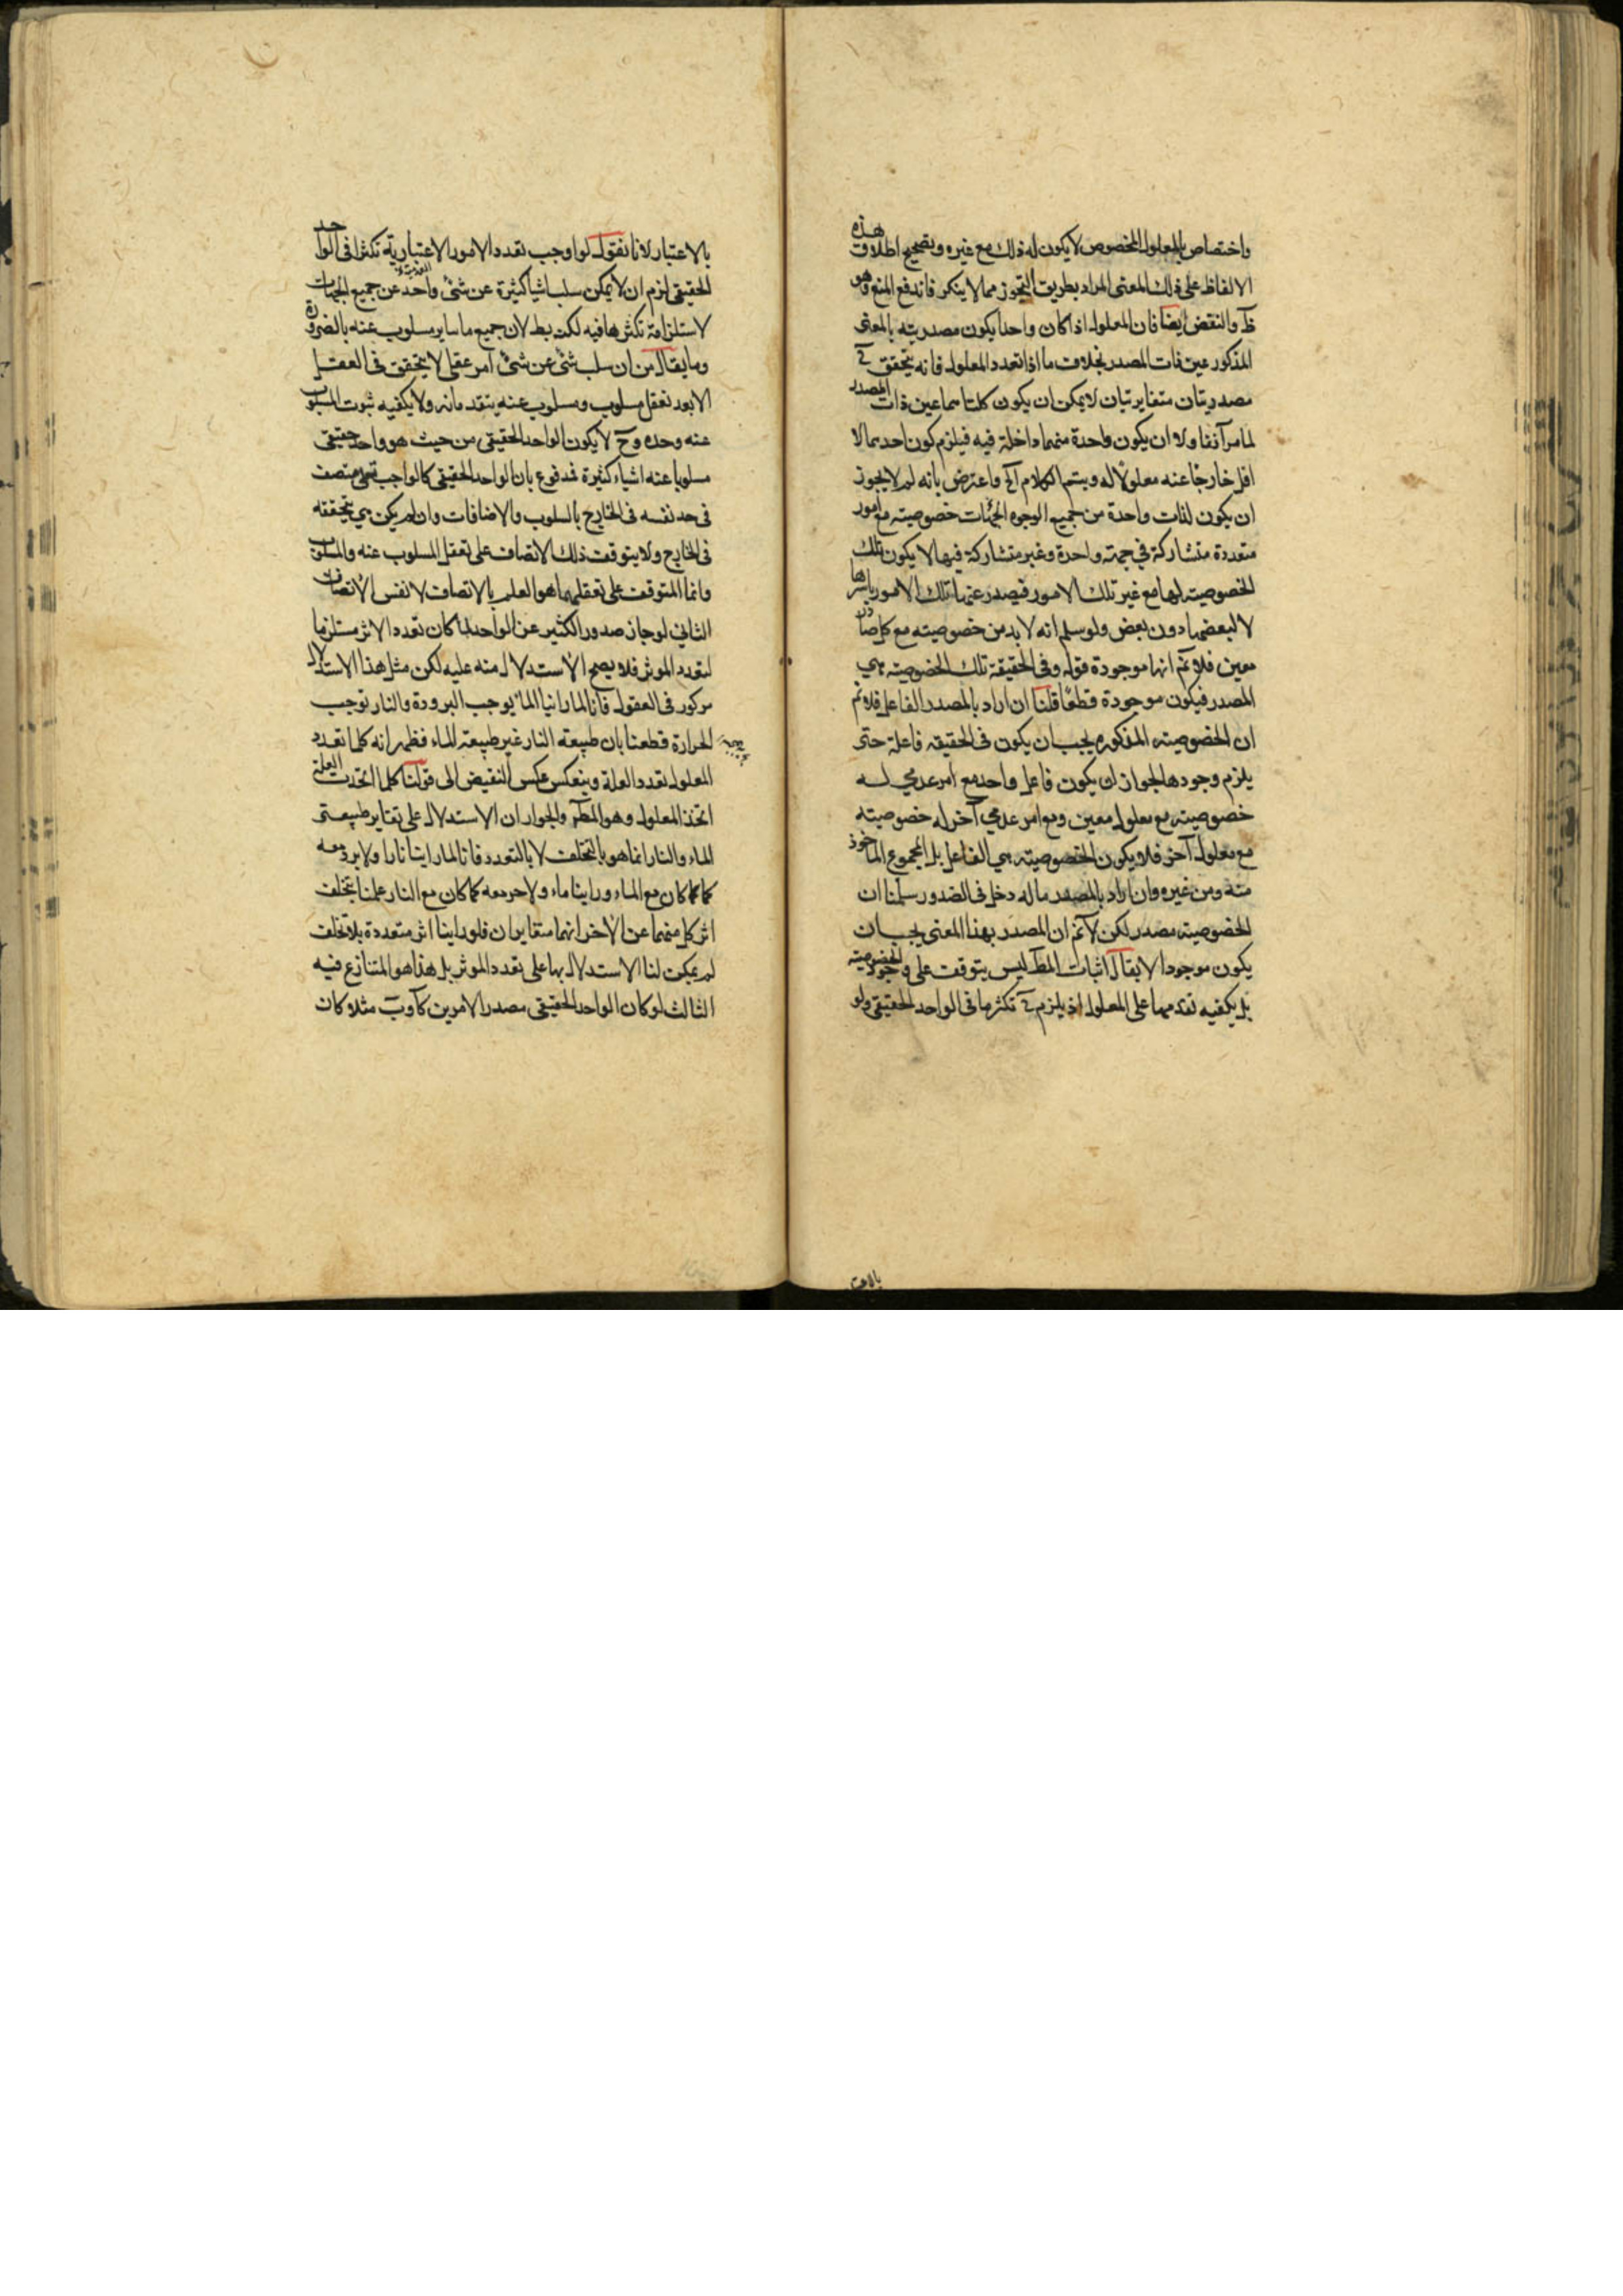 واختصاص بالمعلول المخصوص لا يكون له ذلك مع غيره وتصحيح اطلاق هذه
الالفاظ على ذلك المعنى المراد بطريق التجوز مما لا ينكر فاندفع المنع وهو
ظ والنقض ايضا فان المعلول اذا كان واحدا يكون مصدريته بالمعنى
المذكور عين ذات المصدر بخلاف ما اذا تعدد المعلول فانه يتحقق ح
مصدريتان متغايرتان لا يمكن ان يكون كلتاهما عين ذات المصدر
لما مر آنفا ولا ان يكون واحدة منهما داخلة فيه فيلزم كون احديهما لا
اقل خارجا عنه معلولا له ويتم الكلام الخ واعترض بانه لم لا يجوز
ان يكون لذات واحدة من جميع الوجوه الجهات خصوصيته مع امور
متعددة متشاركة في جهة واحدة وغير متشاركة فيها لا يكون تلك
الخصوصيته لها مع غير تلك الامور فيصدر عنها تلك الامور باسرها
لا لبعضها دون بعض ولو سلم انه لا بد من خصوصيته مع كل صادر
معين فلا نم انها موجودة قوله وفى الحقيقة تلك الخصوصيته هي
المصدر فيكون موجودة قطعا قلنا ان اراد بالمصدر الفاعل فلا نم
ان الخصوصيته المذكوره يجب ان يكون فى الحقيقه فاعلة حتى
يلزم وجودها لجواز ان يكون فاعل واحد مع امر عدمي له
خصوصيته مع معلول معين ومع امر عدمي آخر له خصوصيته
مع معلول آخر فلا يكون الخصوصيته هي الفاعل بل المجموع الماخوذ
منه ومن غيره وان اراد بالمصدر ما له دخل فى الصدور سلمنا ان
الخصوصيته مصدر لكن لا نم ان المصدر بهذا المعنى يجب ان
يكون موجودا لا يقال اثبات المط ليس يتوقف على وجود الخصوصيته
بل يكفيه تقدمها على المعلول اذ يلزم ح تكثر ما فى الواحد الحقيقى ولو
بالاعتبار لانا نقول لو اوجب تعدد الامور الاعتبارية تكثرا فى الواحد
الحقيقى لزم ان لا يمكن سلب اشيا كثيرة عن شئ واحد عن جميع الجهات
لاستلزامة تكثرها فيه لكنه بط لان جميع ما ساير مسلوب عنه بالضرورة
وما يقال من ان سلب شئ عن شئ امر عقلى لا يتحقق فى العقل
الا بعد تعقل مسلوب ومسلوب عنه يتقدمانه ولا يكفيه ثبوت المسلوب
عنه وحده وح لا يكون الواحد الحقيقى من حيث هو واحد حقيقى
مسلوبا عنه اشياء كثيرة فمدفوع بان الواحد الحقيقى كالواجب تعالى متصف
فى حد نفسه فى الخارج بالسلوب والاضافات وان لم يكن هي متحققه
فى الخارج ولا يتوقف ذلك الاتصاف على تعقل المسلوب عنه والمسلوب
وانما المتوقف على تعقلهما هو العلم بالاتصاف لا نفس الاتصاف
الثاني لو جاز صدور الكثير عن الواحد لما كان تعدد الاثر مستلزما
لتعدد الموثر فلا يصح الاستدلال منه عليه لكن مثل هذا الاستدلال
مركوز فى العقول فانا لما رانيا الما يوجب البرودة والنار توجب
الحرارة قطعنا بان طبيعته النار غير طبيعته الماء فظهر انه كلما تعدد
المعلول تعدد العلة وينعكس عكس النقيض الى قولنا كلما اتحدت العلة
اتحد المعلول وهو المط والجواب ان الاستدلال على تغاير طبيعتى
الماء والنار انما هو بالتخلف لا بالتعدد فانا لما راينا نارا ولا برد معه
كما كان مع الماء وراينا ماء ولا حر معه كما كان مع النار علمنا بتخلف
اثر كل منهما عن الاخر انهما متغايران فلو راينا اثر متعددة بلا تخلف
لم يمكن لنا الاستدلال بها على تعدد الموثر بل هذا هو المتنازع فيه
الثالث لو كان الواحد الحقيقى مصدرا لامرين كآ وب مثلا كان